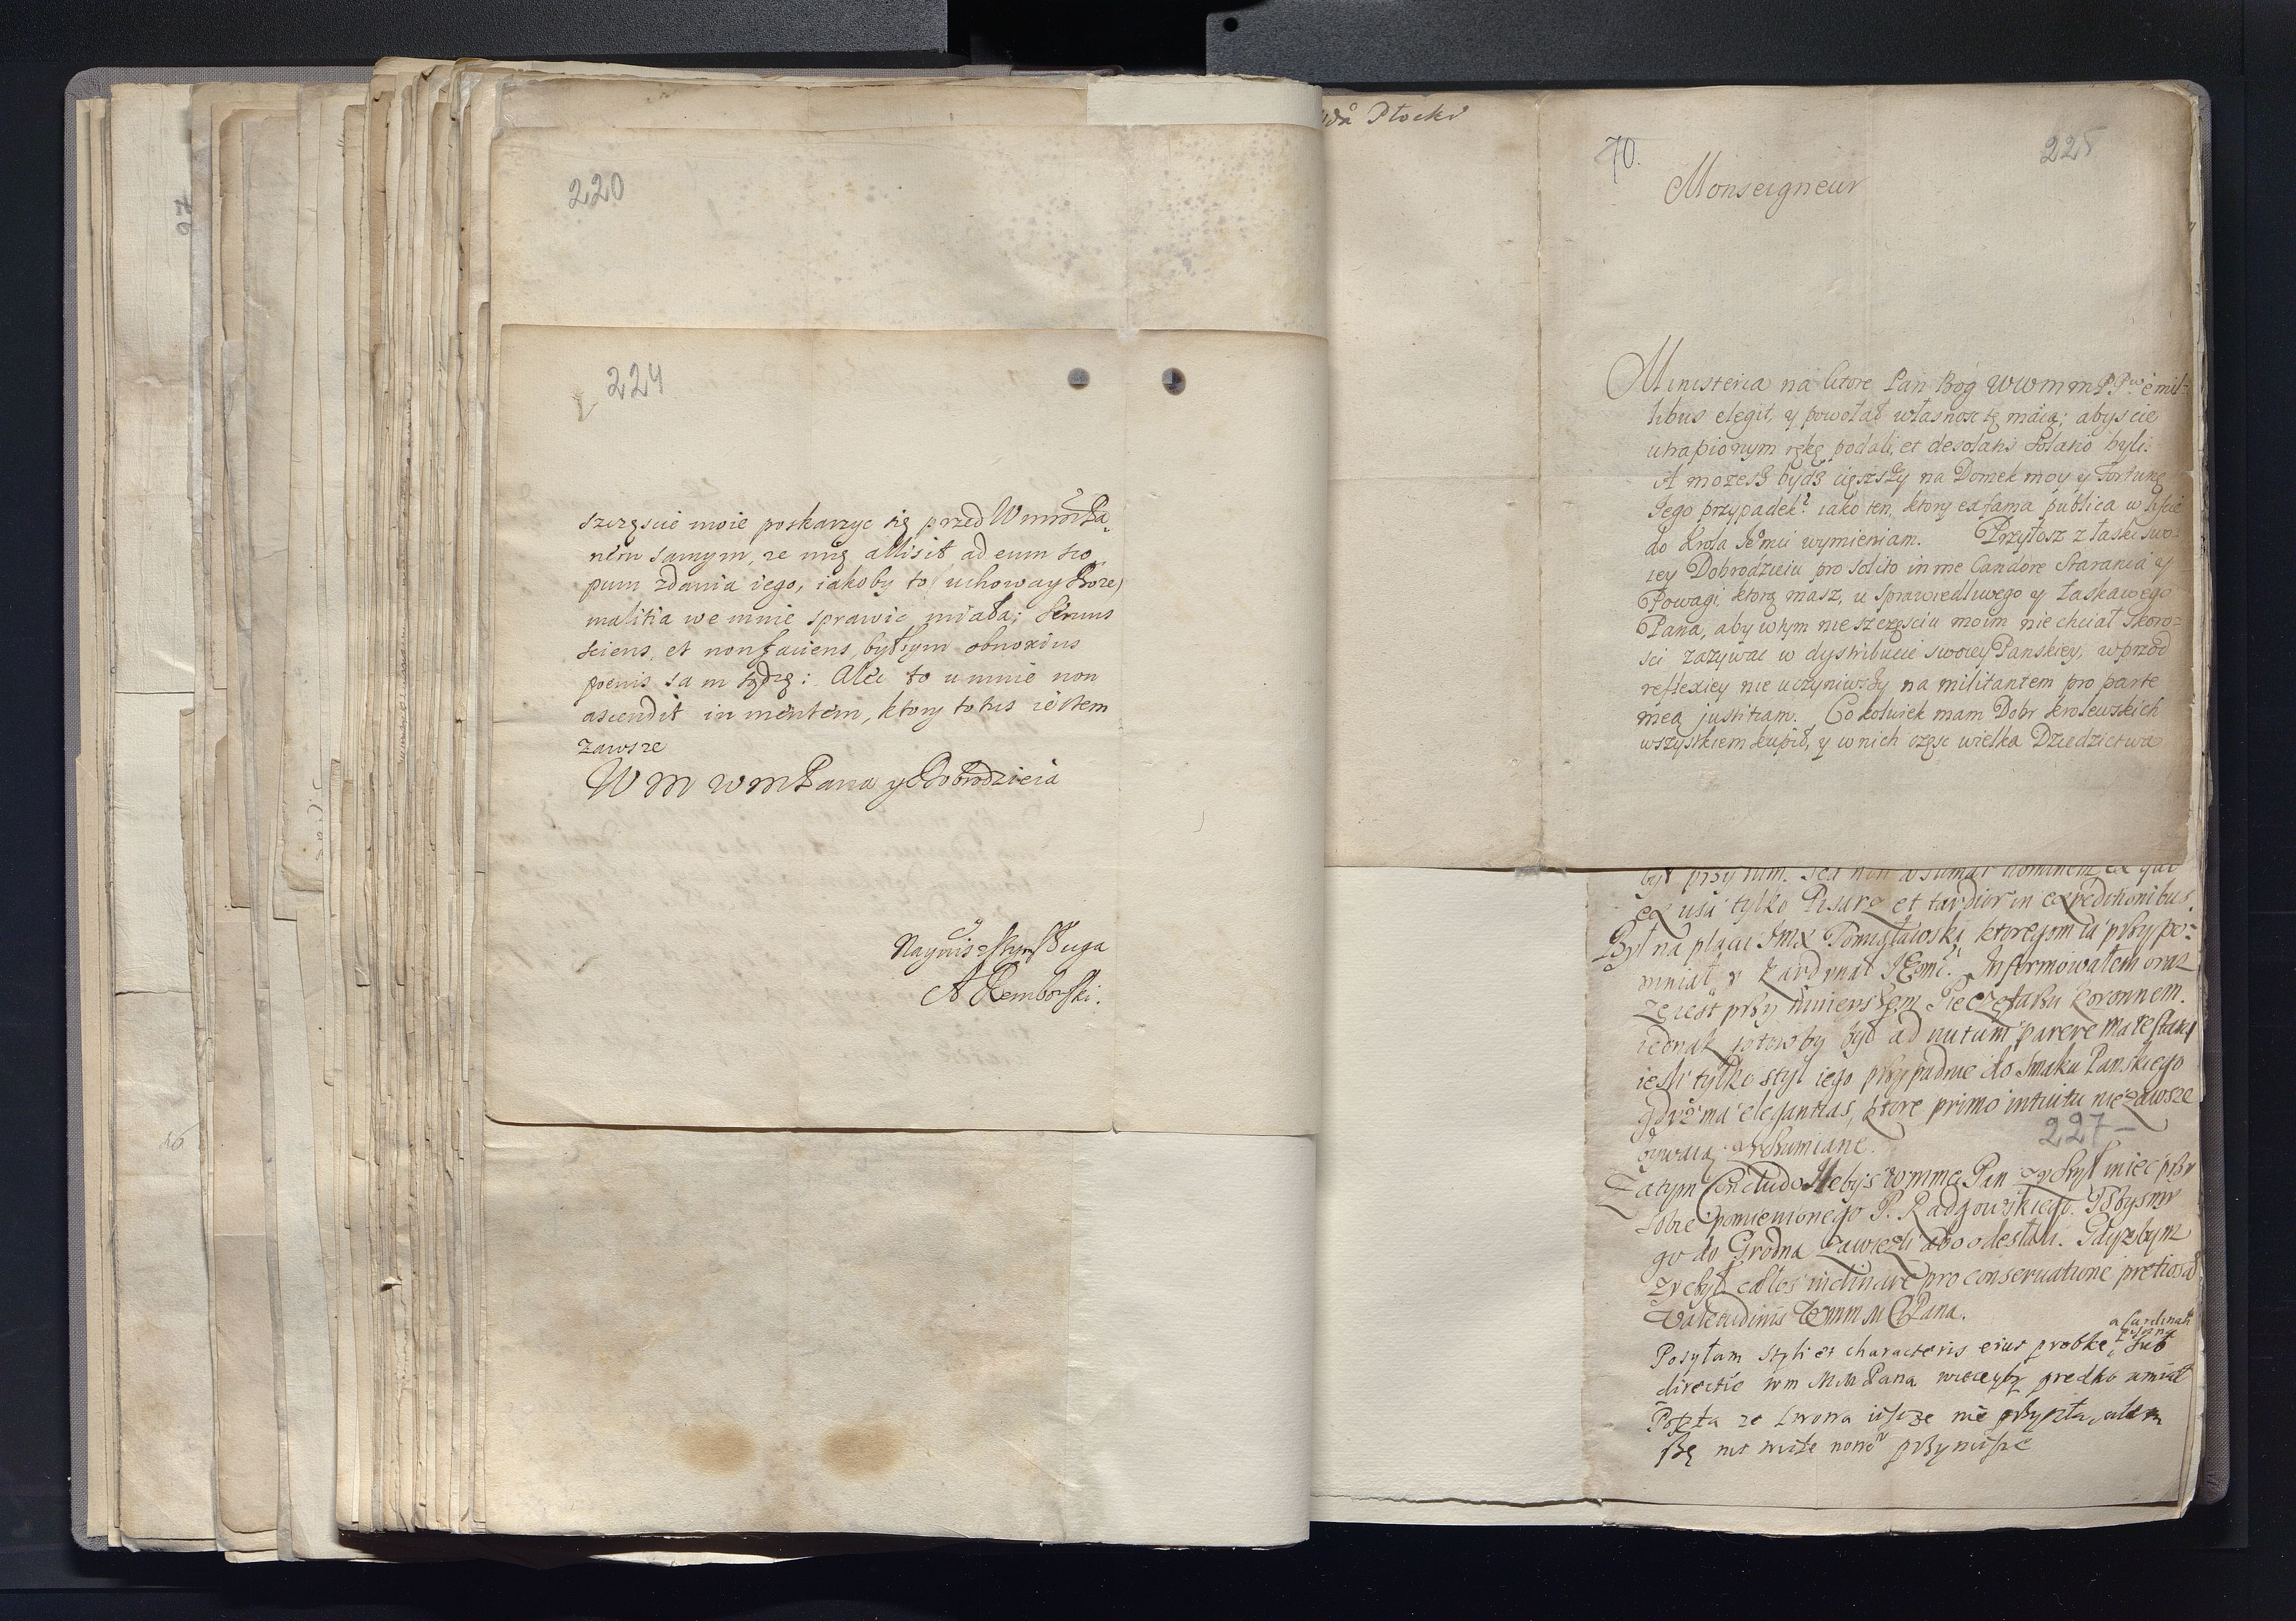 220
224
szczęście moie poskarzyc się przed Wmm Pa
nem samym, ze mię allisit ad eum sco
pum zdania iego, iakoby to (uchoway Boze)
malitia we mnie sprawic miała; Servus
sciens, et non faciens, byłbym obnoxius
poenis sam sądzę: Ale to u mnie non
ascendit in mentem, ktory totus iestem
zawsze
W M W M Pana y Dobrodzieia
Nayniszszym Sługa
A Rembowski.
Płocki
70.
225
Monseigneur
Ministeria na ktore Pan Bog WWMM PPw e mil-
libus elegit, y powołał własnosc tę maią; abyscie
utrapionym rękę podali, et desolatis solatio byli.
A mozesz bydz cięszszy na Domek moy y Fortunę
Iego przypadek? iako ten, ktory ex fama publica w liscie
do Krola Iemci wymieniam. Przyłosz z łaski swo-
iey Dobrodzieiu pro solito in me Candore Starania y
Powagi, ktorą masz, u sprawiedliwego y łaskawego
Pana, aby w tym nieszczęsciu moim nie chciał skoro-
sci zazywac w dystribucie swoiey Panskiey, wprzod
reflexiey nie uczyniwszy na militantem pro parte
mea justitiam. Cokolwiek mam Dobr krolewskich
wszystkiem kupił, y w nich częsc wielka Dziedzictwa
ex usu tylko Pisarz et tardior in expeditionibus.
Był na placu Imx Pomisławski, ktoregom ia przypo-
mniał y Kardynał IEmc. Informowałem oraz
ze iest przy mnieyszem Pieczętarzu Koronnem.
iednak gotowby był ad nutum parere Maiestatis
iesli tylko styl iego przypadnie do smaku Panskiego
gdyz ma elegantias, ktore primo intuitu nie zawsze
bywaią zrozumiane.
227-
Zatym Concludo Zebys Wmm Pan zechył miec przy
sobie pomienionego P. Radzowskiego. Ysbysmy
go do Grodna zawiezli abo odesłali. Gdyzbym
zechył eo los inclinare pro conservatione pretiosae
Valetudinis Wmm M Pana.
a Cardinali
Posyłam styli et characteris eius probkę, sub
directie Wm MM Pana wieceyby prędko umiał
Poczta ze Lwowa ieszcze nie przyszła,
nic miłe nowe przyniesie